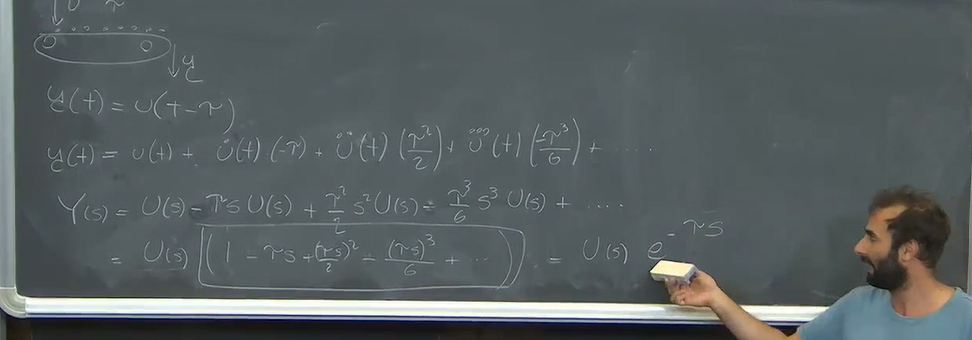 τ
y
y(t) = u(t-τ)
y(t) = u(t) + u̇(t) (-τ) + ü(t) (τ²/2) + u⃛(t) (-τ³/6) + .....
Y(s) = U(s) - τs U(s) + τ²/2 s² U(s) - τ³/6 s³ U(s) + ....
= U(s) (1 - τs + (τs)²/2 - (τs)³/6 + ...) = U(s) e^-τs